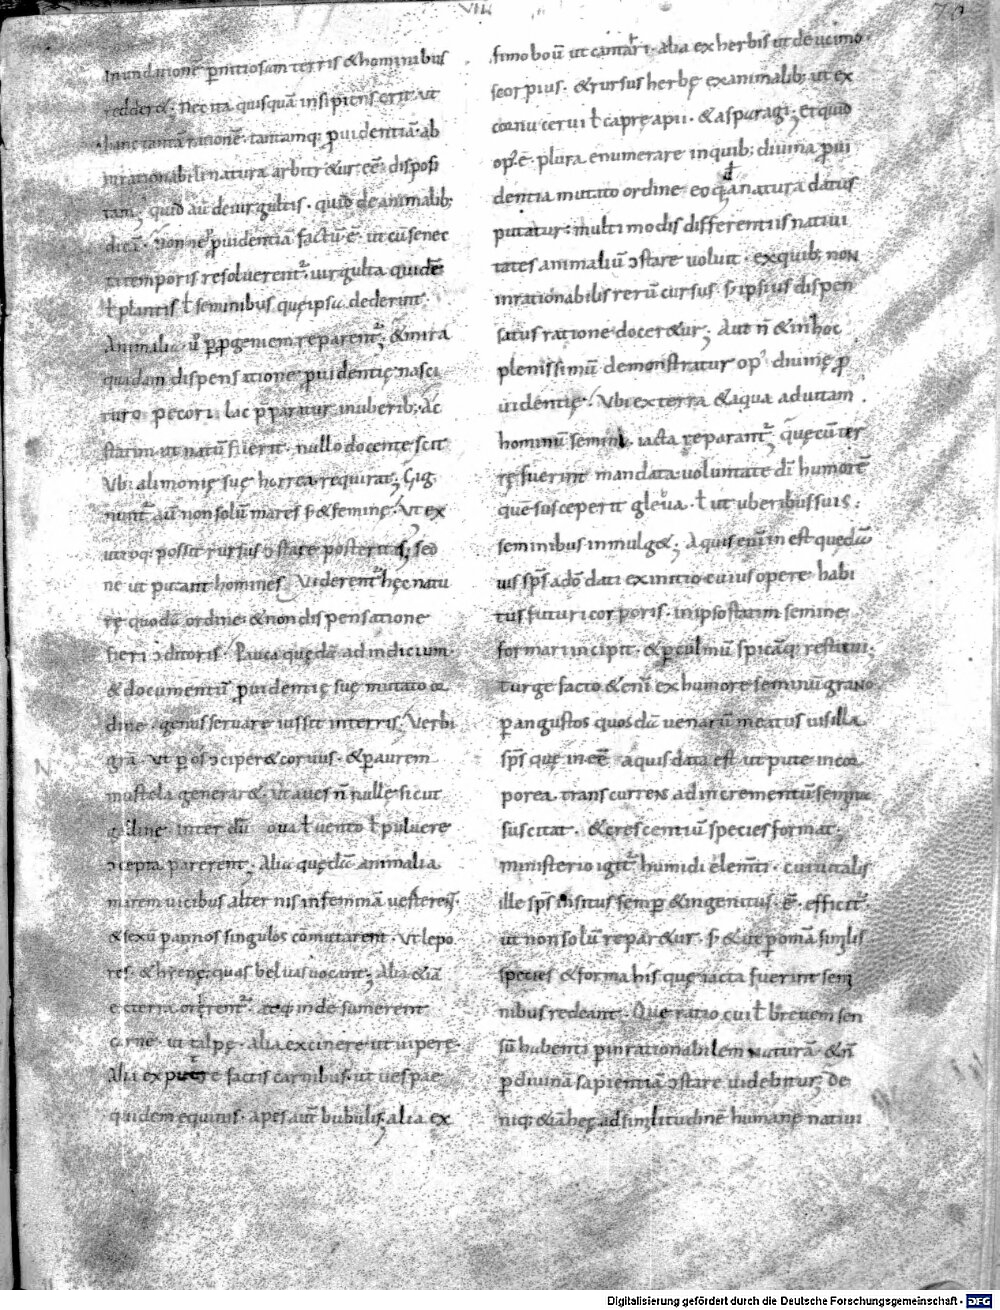 VIII
70
Inundatione p̄nitiosam terris & hominibus
redder&; Nec ita quisquā insipiens erit ut
hanc tantā rationē tantamq; ꝓuidentiā ab
inrationabili natura arbitr&ur eē disposi
tam; quid aū de uirgultis quid de animalib;
dicā. Nonne ꝓuidentia factū ē ut cū senec
ti temporis resoluerent᷑ uirgulta quidē
ł plantis ł seminibus que ipsa dederint
Animalia u̅ ꝓgeniem reparent᷑; & mira
quadam dispensatione ꝓuidentię nasci
turo pecori lac p̄paratur in uberib; ac
statim ut natū fuerit nullo docente scit
Vbi alimonię suę horrea requirat; Gig
nunt᷑ aū non solū mares s; & feminę. Vt ex
utroq; possit rursus ɔstare posteritas; sed
ne ut putant homines. Viderent᷑ hęc natu
rę quodā ordine & non dispensatione
fieri ɔditoris. Pauca quędā ad indicium
& documentū ꝓuidentię suę mutato or
dine genus seruare iussit in terris. Verbi
grā. Vt p os ɔciper& coruus. & p aurem
mostela generar&. ut aues n̄nullę sicut
gallinę inter dū oua ł uento ł puluere
ɔcepta parerent; Alia quędā animalia
marem uicibus alternis in feminā uerterent᷑.
& sexū p annos singulos cōmutarent. Vt lepo
res & hyenę quas beluas uocant; Alia &iā
e terra orerent᷑ atq; inde sumerent
carnē ut talpę. alia ex cinere ut uiperę.
Alii ex putre factis carnibus. ut uespae
quidem equinis. apes aūt bubulis; alia ex
fimo boū ut cantari. alia ex herbis ut de ucimo
scorpius. & rursus herbę ex animalib; ut ex
cornu cerui ł caprę apii. & asparagi; Et quid
op᷒ ē plura enumerare in quib; diuina ꝓui
dentia mutato ordine eo q̄ a natura datus
putatur. multimodis differentiis natiui
tates animaliū ɔstare uoluit. ex quib; non
inrationabilis rerū cursus. s; ipsius dispen
satus ratione docer&ur; Aut n̄ & in hoc
plenissimū demonstratur op᷒ diuinę ꝓ
uidentię. Vbi ex terra & aqua ad uitam
hominū semina iacta reparant᷑; que cū ter
rę fuerint mandata uoluntate dī humorē
quē susceperit gleua. ł ut uberibus suis
seminibus inmulg&; Aquis enī inest quędā
uis sp̄s a dō dati ex initio cuius opere habi
tus futuri corporis. in ipso statim semine
formari incipit. & p culmū spicāq; restitui;
Turgefacto &enī ex humore seminū grano
p angustos quosdā uenarū meatus uis illa
sp̄s que in eē aquis data est ut pute incor
porea. transcurrens ad incrementū semina
suscitat. & crescentiū species format.
ministerio igit᷑ humidi elem̄ti. cui uitalis
ille sp̄s insitus semp & ingenitus ē. efficit᷑
ut non solū repar&ur. s; & ut p omā similis
species & forma his que iacta fuerint semi
nibus redeant. Que ratio cui ł breuem sen
sū habenti p inrationabilem naturā & n̄
p diuinā sapientiā ɔstare uidebitur; De
niq; & hęc ad similitudinē humanę natiui
Digitalisierung gefördert durch die Deutsche Forschungsgemeinschaft - DFG